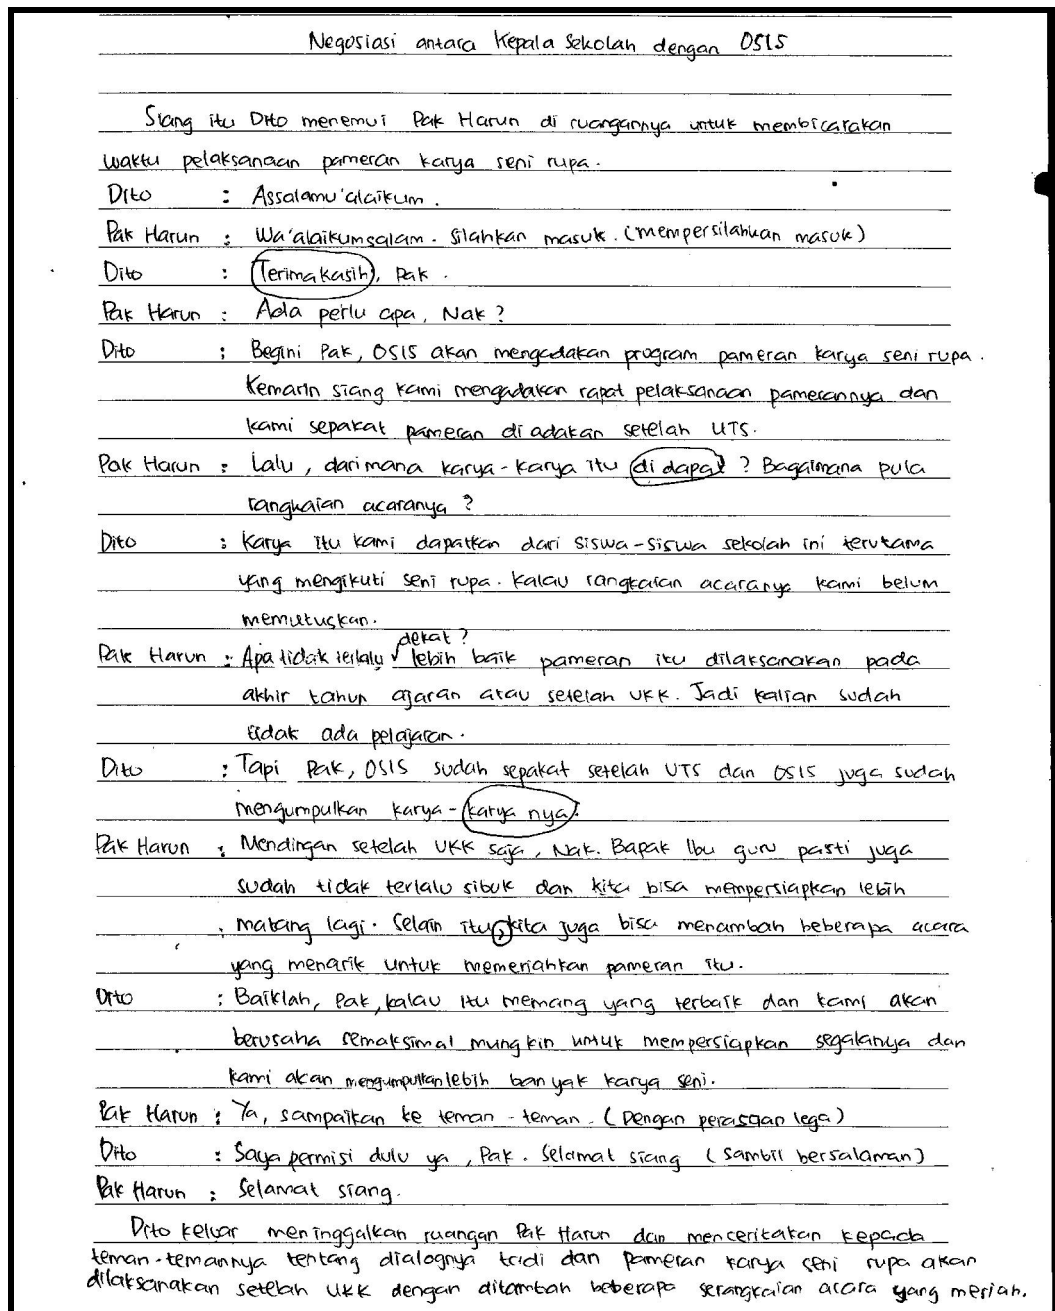 Negosiasi antara Kepala Sekolah dengan OSIS
Siang itu Dito menemui Pak Harun di ruangannya untuk membicarakan
waktu pelaksanaan pameran karya seni rupa.
Dito : Assalamu'alaikum.
Pak Harun : Wa'alaikumsalam. Silahkan masuk. (mempersilahkan masuk)
Dito : Terimakasih, Pak.
Pak Harun : Ada perlu apa, Nak?
Dito : Begini Pak, OSIS akan mengadakan program pameran karya seni rupa.
Kemarin siang kami mengadakan rapat pelaksanaan pamerannya dan
kami sepakat pameran di adakan setelah UTS.
Pak Harun : Lalu, darimana karya-karya itu di dapat? Bagaimana pula
rangkaian acaranya?
Dito : Karya itu kami dapatkan dari siswa-siswa sekolah ini terutama
yang mengikuti seni rupa. Kalau rangkaian acaranya kami belum
memutuskan.
dekat?
Pak Harun : Apa tidak terlalu √ lebih baik pameran itu dilaksanakan pada
akhir tahun ajaran atau setelah UKK. Jadi kalian sudah
tidak ada pelajaran.
Dito : Tapi Pak, OSIS sudah sepakat setelah UTS dan OSIS juga sudah
mengumpulkan karya-karya nya.
Pak Harun : Mendingan setelah UKK saja, Nak. Bapak Ibu guru pasti juga
sudah tidak terlalu sibuk dan kita bisa mempersiapkan lebih
matang lagi. Selain itu, kita juga bisa menambah beberapa acara
yang menarik untuk memeriahkan pameran itu.
Dito : Baiklah, Pak, kalau itu memang yang terbaik dan kami akan
berusaha semaksimal mungkin untuk mempersiapkan segalanya dan
kami akan mengumpulkan lebih banyak karya seni.
Pak Harun : Ya, sampaikan ke teman-teman. (Dengan perasaan lega)
Dito : Saya permisi dulu ya, Pak. Selamat siang (sambil bersalaman)
Pak Harun : Selamat siang.
Dito keluar meninggalkan ruangan Pak Harun dan menceritakan kepada
teman-temannya tentang dialognya tadi dan pameran karya seni rupa akan
dilaksanakan setelah UKK dengan ditambah beberapa serangkaian acara yang meriah.